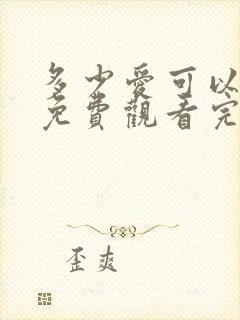 多少愛可以
免費觀看完
歪爽